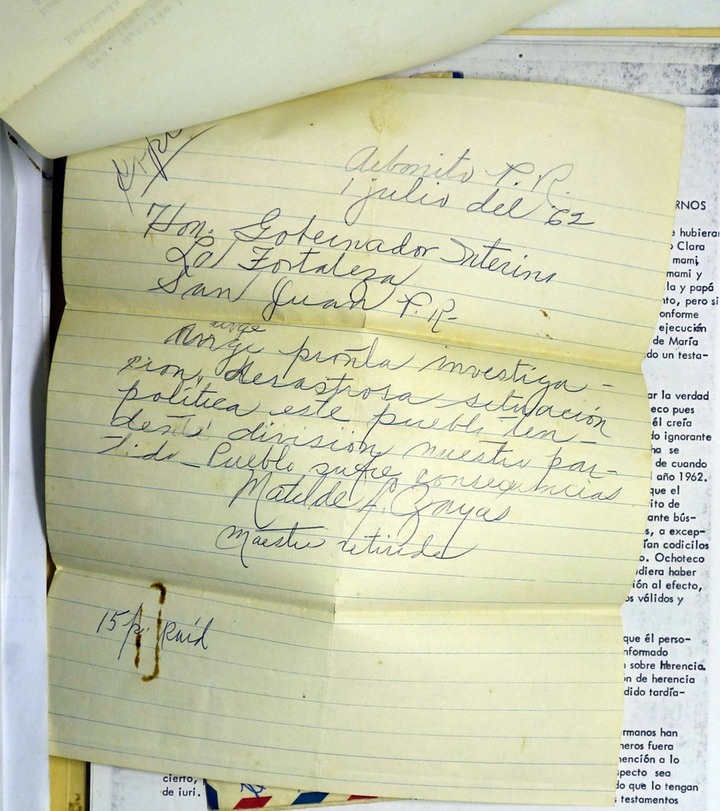 Copy
Aibonito P.R.
1 julio del '62
Hon. Gobernador Interino
La Fortaleza
San Juan P.R.
urge
Urge pronta investiga-
cion, desastrosa situación
política este pueblo ten-
dente división nuestro par-
tido_ Pueblo sufre consequencias
Matilde L. Zayas
Maestra retirada
15 p. Raíd
RNOS
e hubieran
o Clara
mami,
mami y
la y papá
nto, pero si
onforme
ejecución
de María
do un testa-
ar la verdad
eco pues
él creía
do ignorante
ha se
de cuando
año 1962.
que el
ito de
ante bús-
s, a excep-
ían codicilos
o. Ochoteco
diera haber
ión al efecto,
os válidos y
que él perso-
nformado
sobre herencia.
ón de herencia
dido tardía-
rmanos han
neros fuera
nención a lo
specto sea
do que lo tengan
s testamentos
cierto,
de iuri.